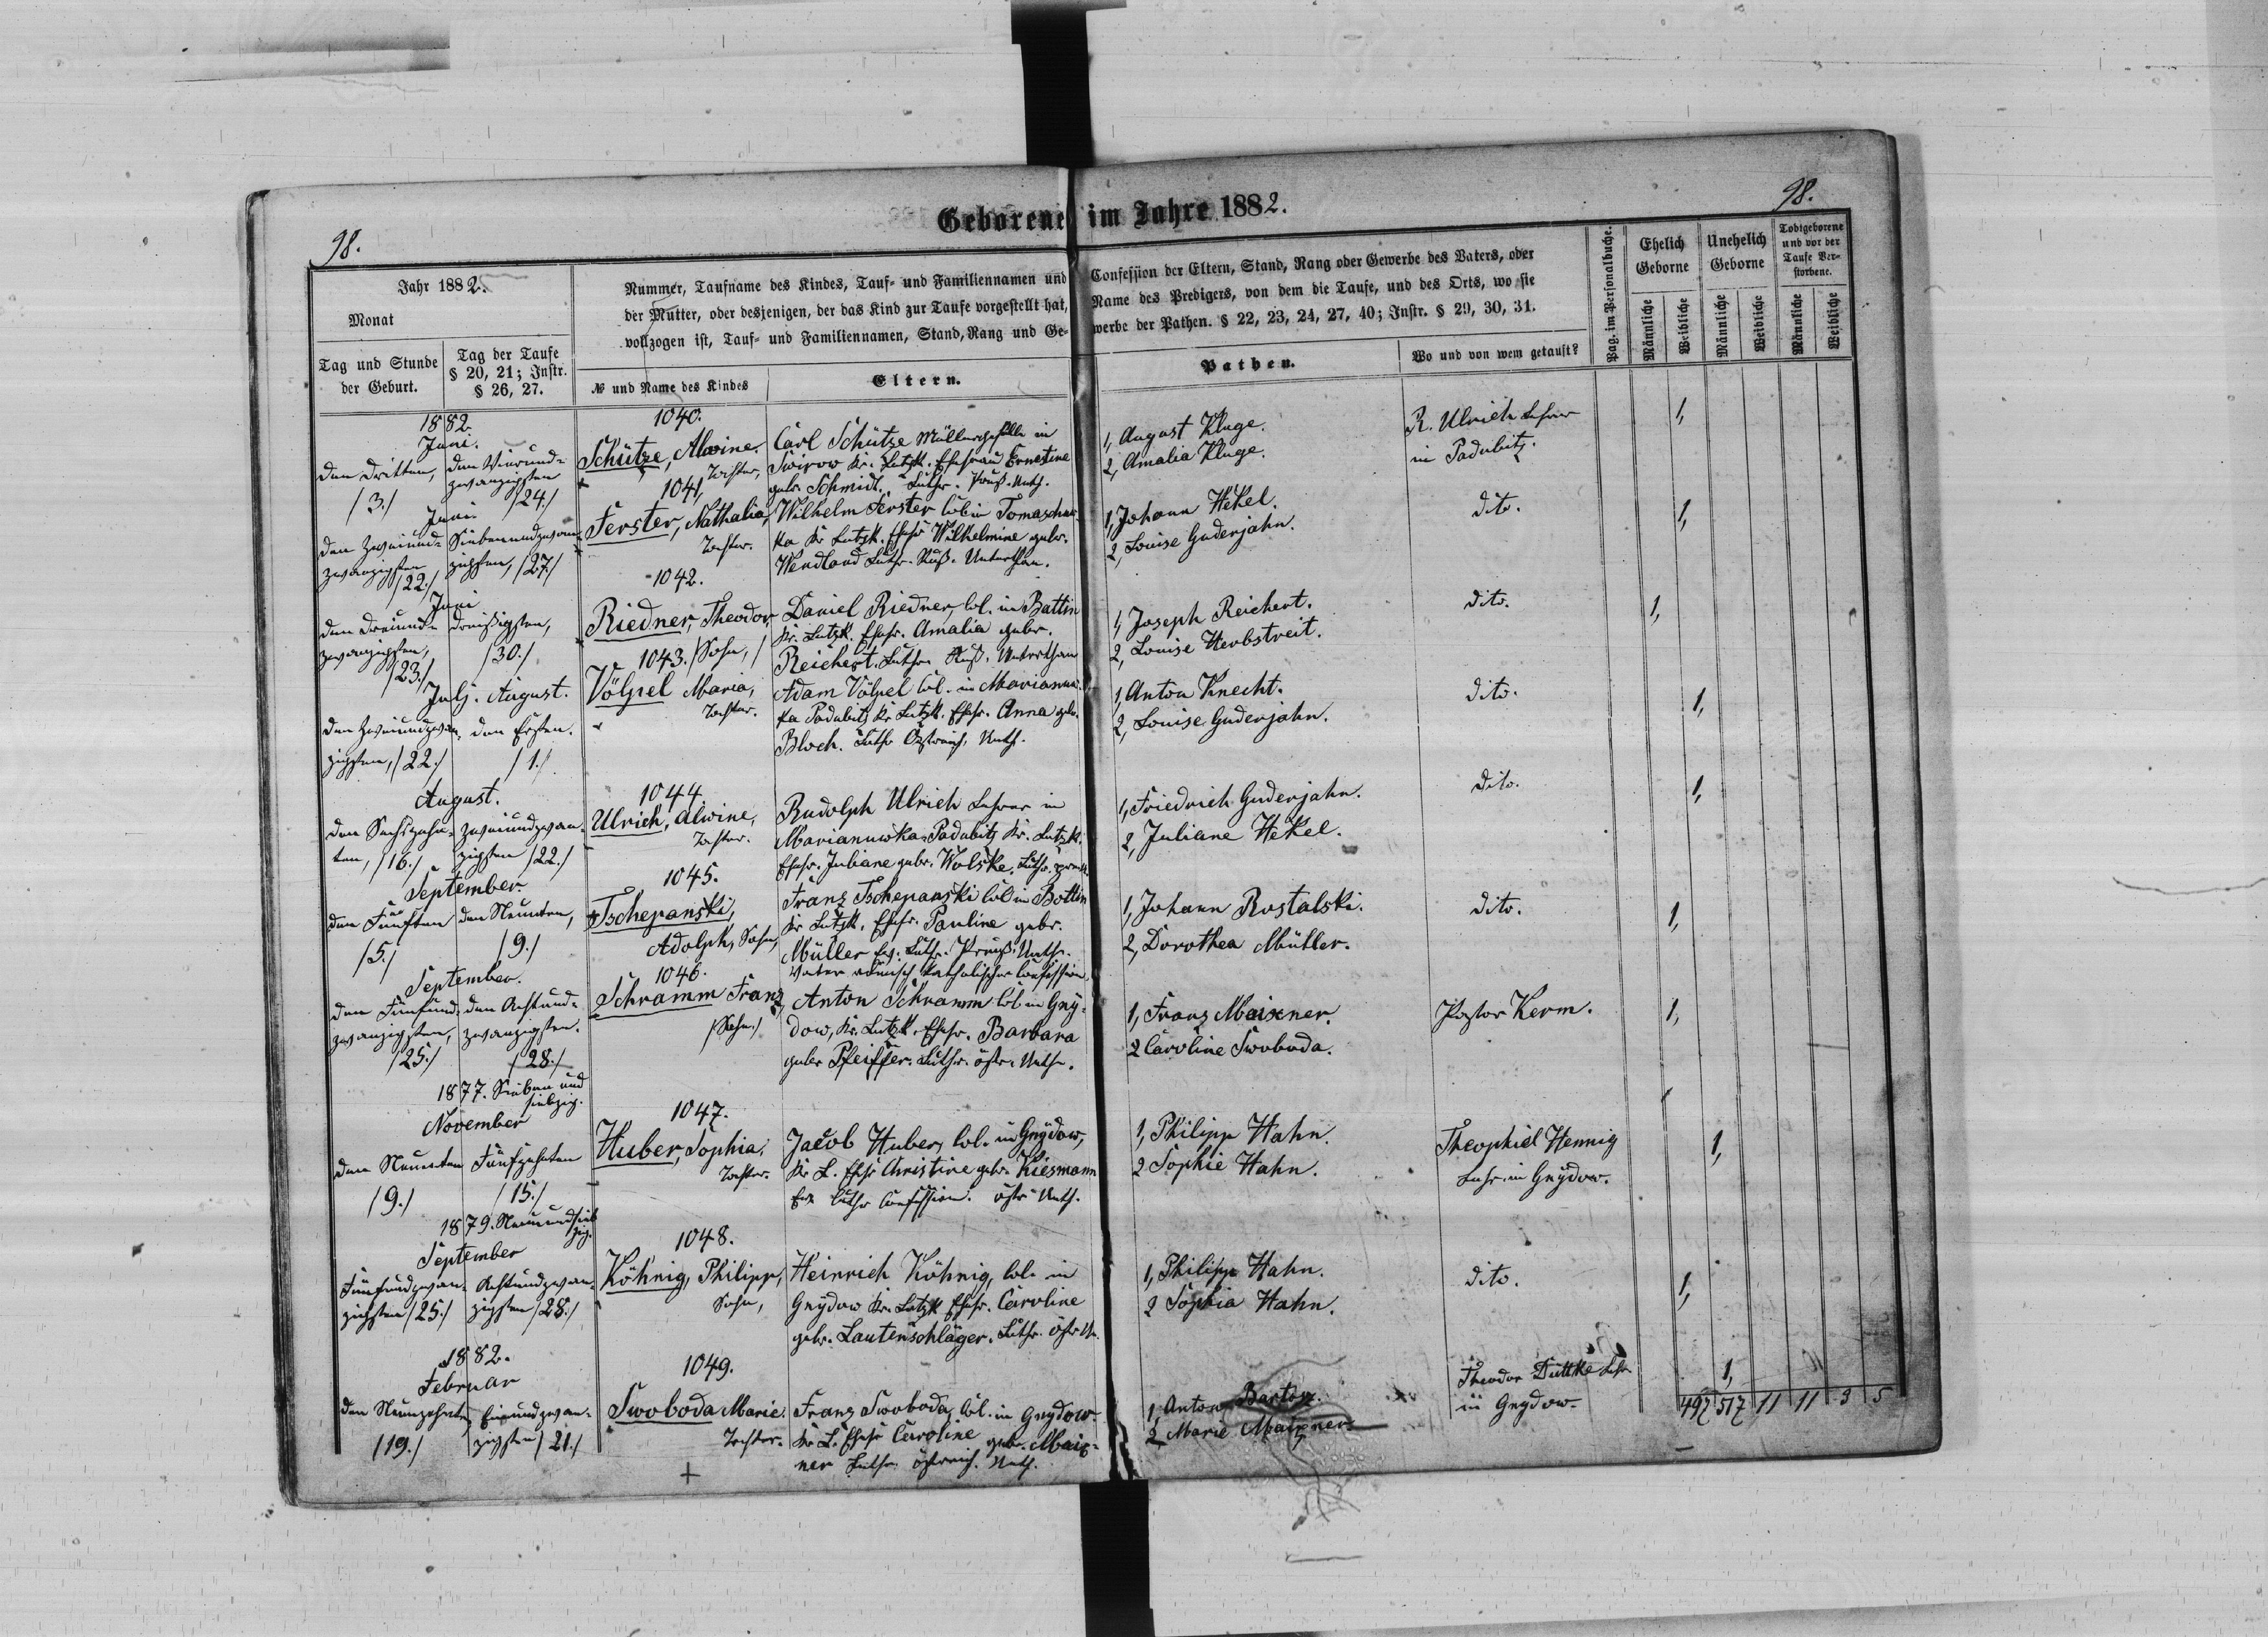 Geborene im Jahre 1882.
98.
98.
Jahr 1882.
Monat
Tag und Stunde der Geburt.
Tag der Taufe § 20, 21; Instr. § 26, 27.
Nummer, Taufname des Kindes, Tauf- und Familiennamen und
der Mutter, oder desjenigen, der das Kind zur Taufe vorgestellt hat,
vollzogen ist, Tauf- und Familiennamen, Stand, Rang und Ge-
№ und Name des Kindes
Eltern.
Confession der Eltern, Stand, Rang oder Gewerbe des Vaters, oder
Name des Predigers, von dem die Taufe, und des Orts, wo sie
werbe der Pathen. § 22, 23, 24, 27, 40; Instr. § 29, 30, 31.
Pathen.
Wo und von wem getauft?
Pag. im Personalbuche.
Ehelich Geborne
Unehelich Geborne
Todtgeborene und vor der Taufe Verstorbene.
Männliche
Weibliche
Männliche
Weibliche
Männliche
Weibliche
1882.
Juni.
den Dritten,
/3./
den Vierund-
zwanzigsten
/24./
1040.
Schütze, Alwine.
Tochter,
Carl Schütze Müllergeselle in
Swirow Kr. Lutzk. Ehefrau Ernestine
gebr. Schmidt. Luthr. Preuß. Unth.
1, August Kluge.
2, Amalia Kluge.
R. Ulrich Lehrer
in Padubitz.
1,
Juni
den Zweiund-
zwanzigsten
/22./
Siebenundzwan-
zigsten, /27./
1041,
Ferster, Nathalia,
Tochter.
Wilhelm Ferster Col. in Tomaschuw-
ka Kr Lutzk. Ehefr Wilhelmine gebr.
Wendland Luthr. Ruß. Unterthan.
1, Johann Hekel.
2, Louise Guderjahn.
dito.
1,
Juni
den Dreiund-
zwanzigsten,
/23./
dreißigsten,
/30./
1042.
Riedner, Theodor,
/Sohn,/
Daniel Riedner, Col. in Battin
Kr. Lutzk. Ehefr. Amalia gebr.
Reichert. Luthr. Ruß. Unterthan
1, Joseph Reichert.
2, Louise Herbstreit.
dito.
1,
July. August.
den Zweiundzwan-
zigsten, /22./
den Ersten.
/1./
1043.
Völpel Maria,
Tochter.
Adam Völpel Col. in Marianuw-
ka Padubitz Kr Lutzk. Ehefr. Anna geb.
Bloch. Luthr Östreich. Unth.
1, Anton Knecht.
2, Louise Guderjahn.
dito.
1,
August.
den Sechszehn-
ten, /16./
zweiundzwan-
zigsten /22./
1044
Ulrich, Alwine,
Tochter.
Rudolph Ulrich Lehrer in
Marianuwka-Padubitz Kr. Lutzk.
Ehefr. Juliane gebr. Wolske. Luthr. preuß.
1, Friedrich Guderjahn.
2, Juliane Hekel.
dito.
1,
September.
den Fünften
/5./
den Neunten,
/9./
1045.
Tschepanski,
Adolph, Sohn,
Franz Tschepanski Col in Bottin
Kr Lutzk. Ehefr. Pauline gebr.
Müller Ev: Luthr. Preuß. Unth.
Vater römisch katholischer Confession
1, Johann Rostalski.
2, Dorothea Müller.
dito.
1,
September.
den Fünfund-
zwanzigsten,
/25./
den Achtund-
zwanzigsten.
/28./
1046.
Schramm Franz
/Sohn./
Anton Schramm Col. in Gny-
dow, Kr. Lutzk. Ehefr. Barbara
gebr Pfeiffer. Luthr. östr. Unth.
1, Franz Maixner.
2 Caroline Swoboda.
Pastor Kerm.
1,
1877. Sieben und
siebzig.
November
den Neunten
/9./
Fünfzehnten
/15./
1047.
Huber, Sophia,
Tochter.
Jacob Huber, Col. in Gnydow,
Kr L. Ehefr Christine gebr. Kiesmann
Ev Luthr Confession. östr Unth.
1, Philipp Hahn.
2 Sophie Hahn.
Theophiel Hennig
Lehr. in Gnydow.
1,
1879. Neunundsieb
zig.
September
Fünfundzwan-
zigsten /25./
Achtundzwan-
zigsten /28./
1048.
Köhnig, Philipp,
Sohn,
Heinrich Köhnig, Col. in
Gnydow Kr. Lutzk Ehefr. Caroline
gebr. Lautenschläger. Luthr. östr Un.
1, Philipp Hahn.
2 Sophia Hahn.
dito.
1,
1882.
Februar
den Neunzehnten
/19./
Einundzwan-
zigsten /21./
1049.
Swoboda Marie.
Tochter.
Franz Swoboda, Col. in Gnydow.
Kr L. Ehefr Caroline gebr. Maix-
ner Luthr. östreich. Unth.
1, Anton Bartosz.
2 Marie Maixner
Theodor Duttke Lehr.
in Gnydow.
1,
492 517 11 11 3 5